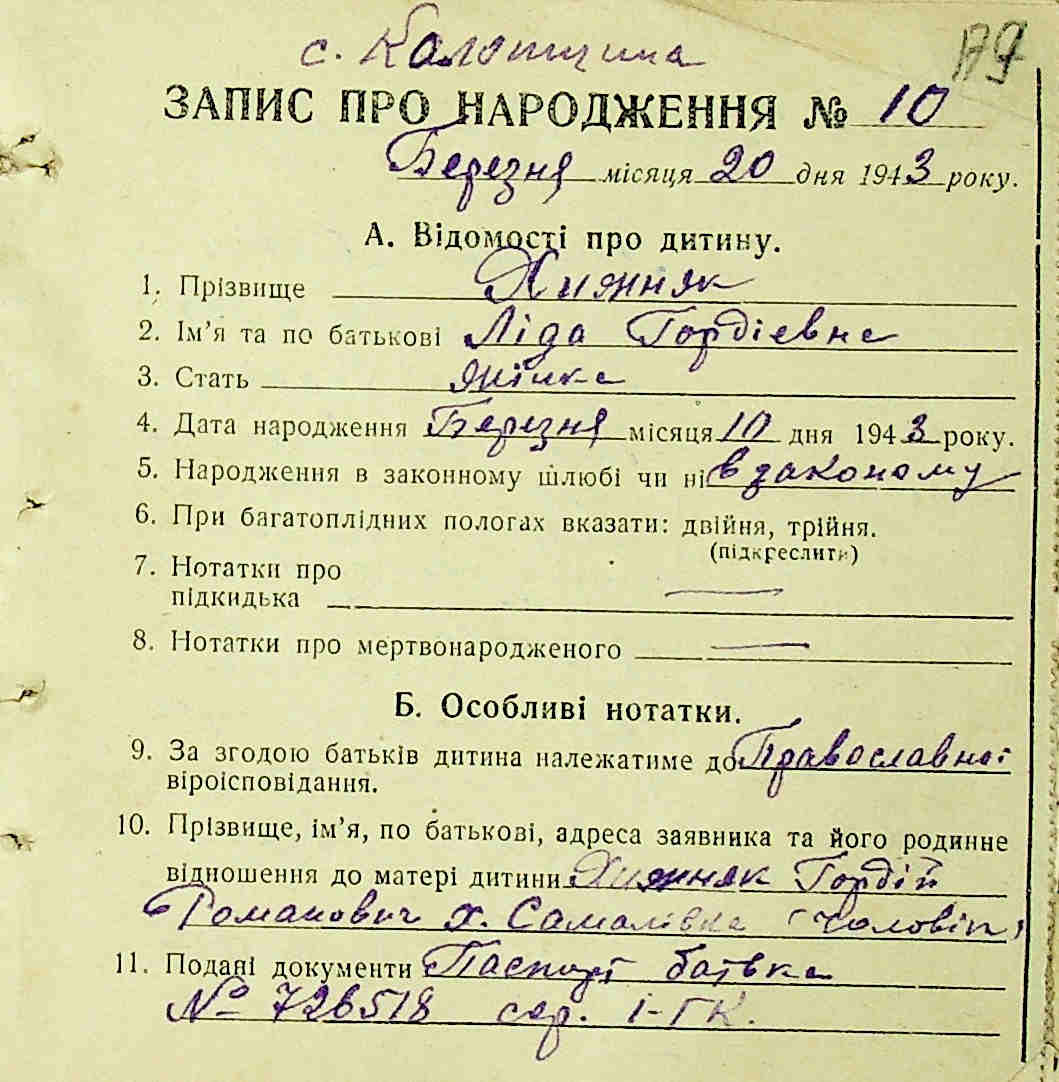 с. Калотчина
ЗАПИС ПРО НАРОДЖЕННЯ № 10
Березня місяця 20 дня 1943 року.
А. Відомості про дитину.
1. Прізвище Хижняк
2. Ім'я та по батькові Ліда Гордіевна
3. Стать жінка
4. Дата народження Березня місяця 10 дня 1943 року.
5. Народження в законному шлюбі чи ні в законому
6. При багатоплідних пологах вказати: двійня, трійня.
(підкреслити)
7. Нотатки про
підкидька —
8. Нотатки про мертвонародженого —
Б. Особливі нотатки.
9. За згодою батьків дитина належатиме до Православної
віроісповідання.
10. Прізвище, ім'я, по батькові, адреса заявника та його родинне
відношення до матері дитини Хижняк Гордій
Романович х. Самалівка (чоловік)
11. Подані документи Паспорт батька
№ 726518 сер. І-ГК.